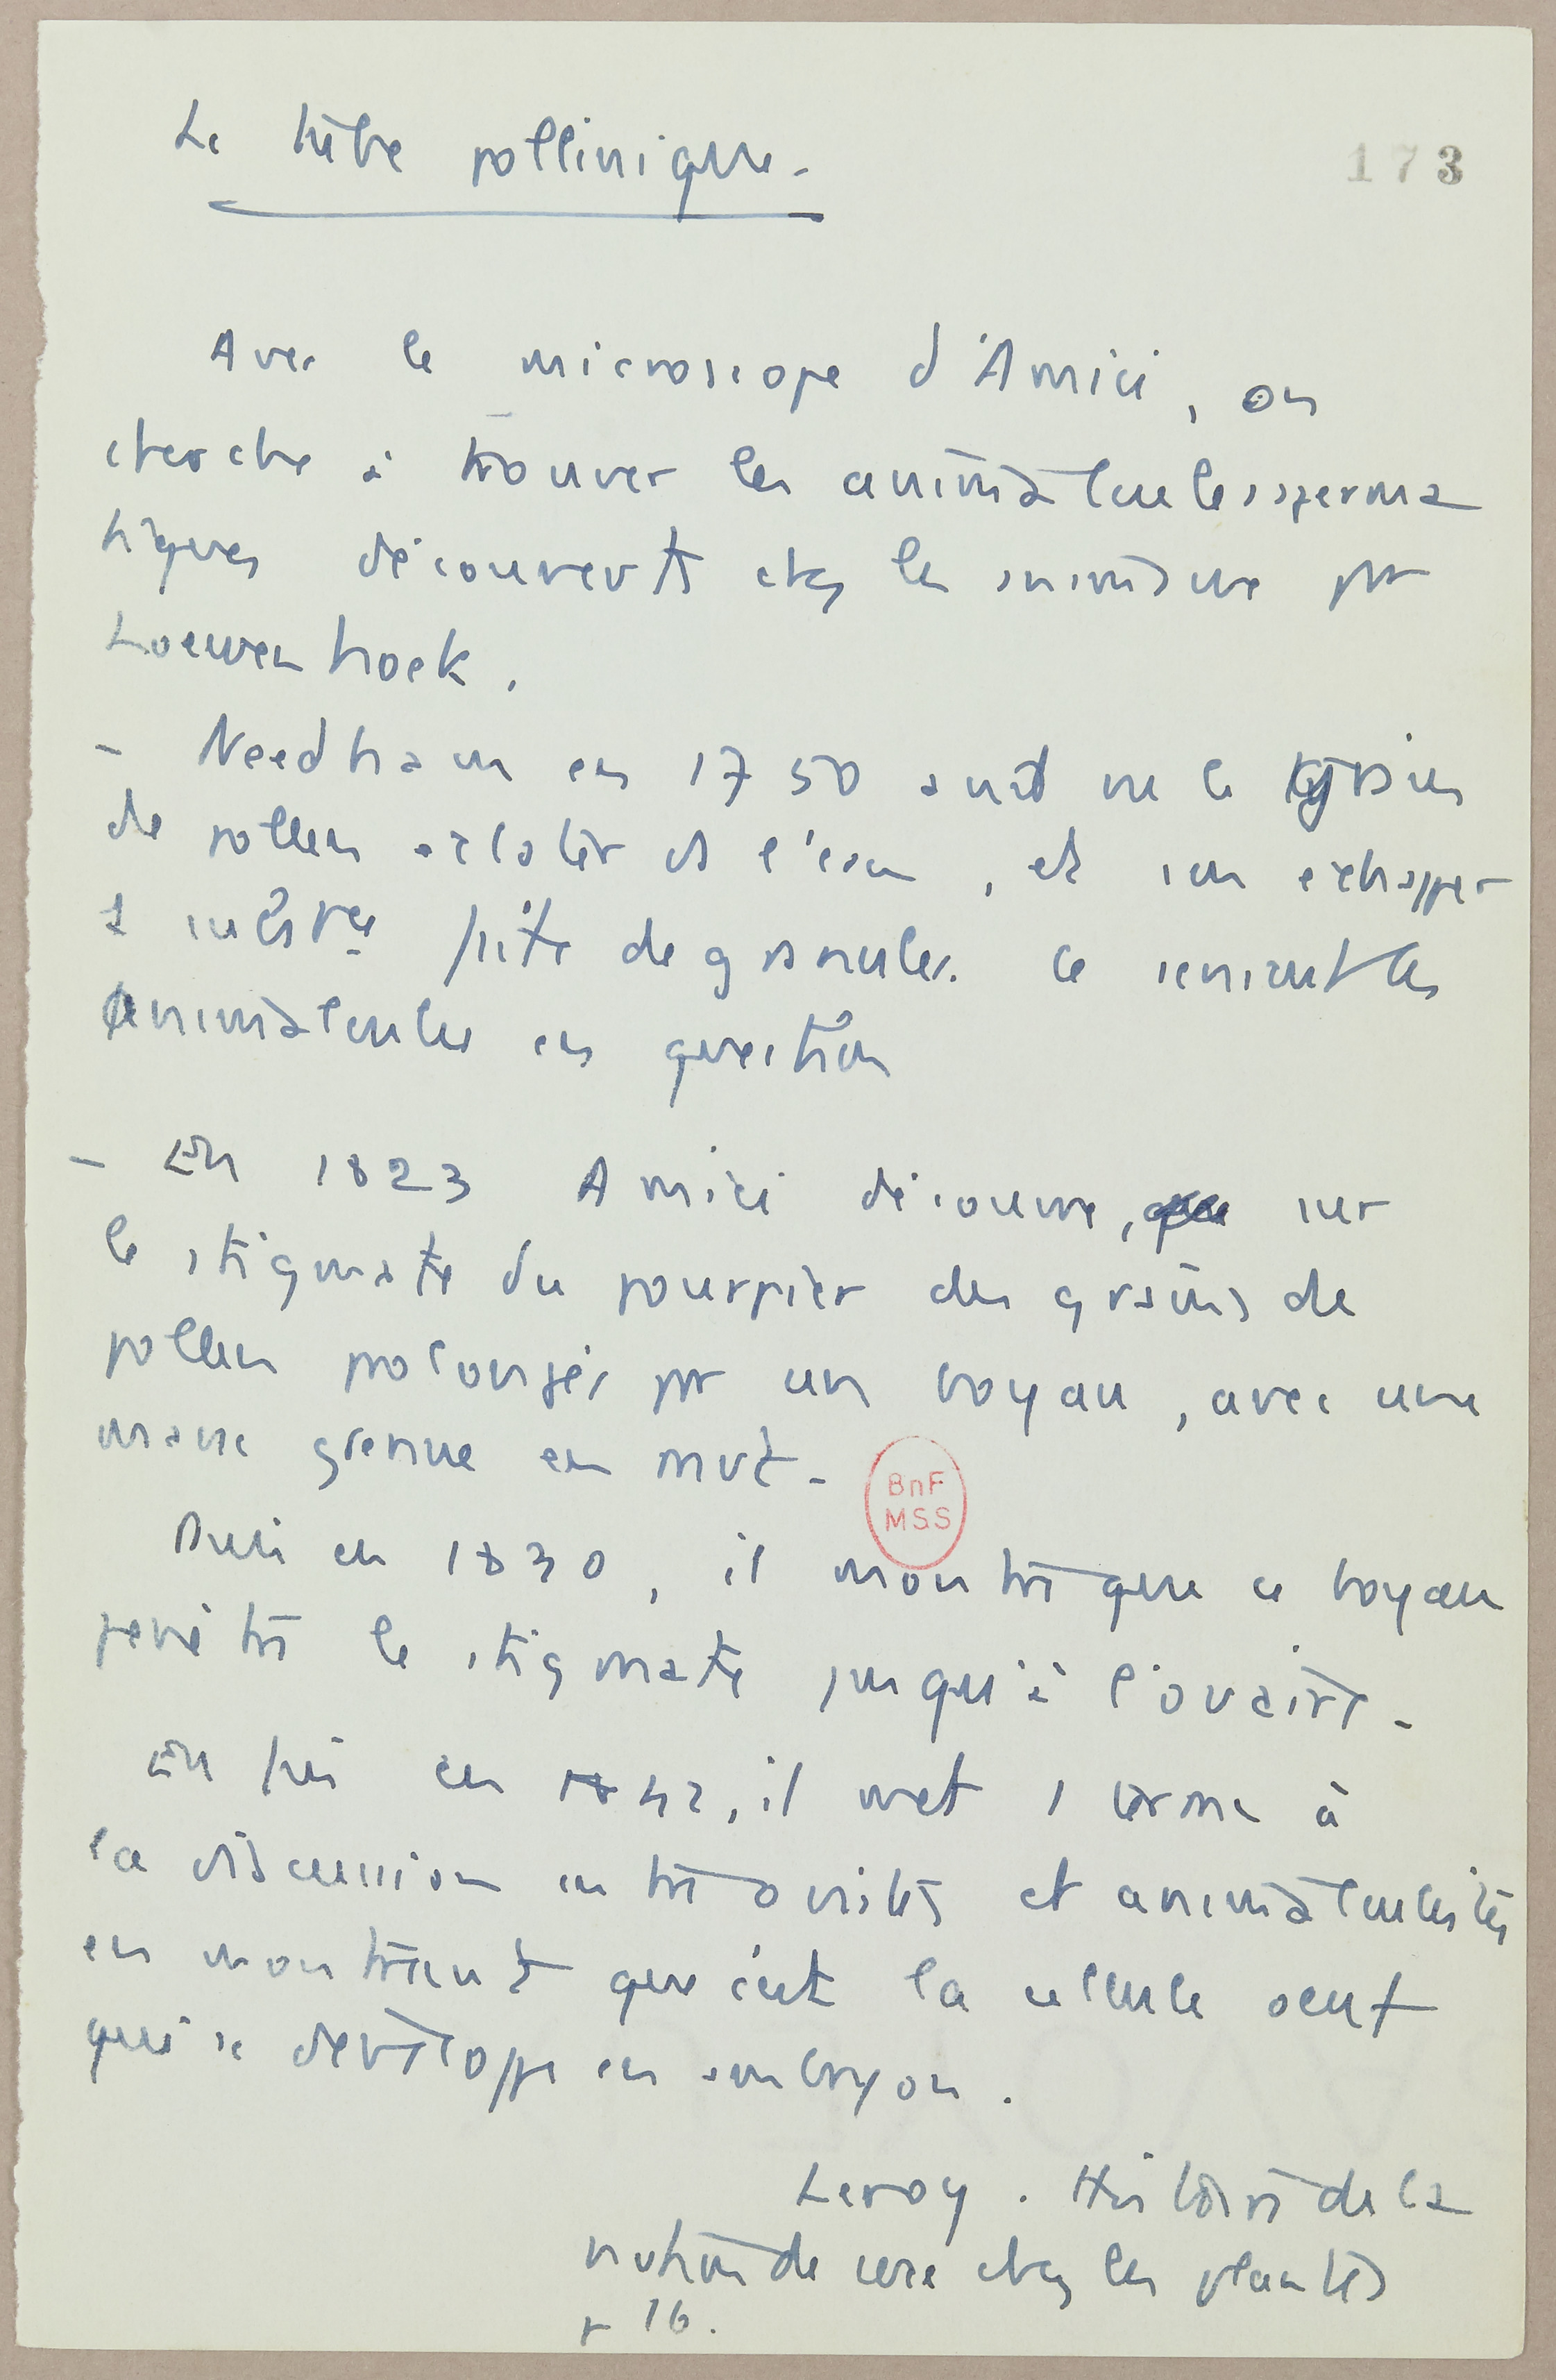 Le tube pollinique.
173
Avec le microscope d'Amici, on
cherche à trouver les animalcules sperma
tiques découverts chez les animaux par
Loewenhoek.
- Needham en 1750 avait vu le grain
de pollen éclater ds l'eau, et s'en échapper
1 quantité de granules. Ce seraient les
Animalcules en question
- En 1823 Amici découvre, sur
le stigmate du pourpier des grains de
pollen prolongés par un boyau, avec une
masse grenue en mvt.
Puis en 1830, il montre que ce boyau
pénètre le stigmate jusqu'à l'ovaire.
En fin en 1842, il met 1 terme à
la discussion entre ovistes et animalculistes
en montrant que c'est la cellule oeuf
qui se développe en embryon.
BnF
MSS
Leroy. Histoire de la
notion de sexe chez les plantes
p 16.